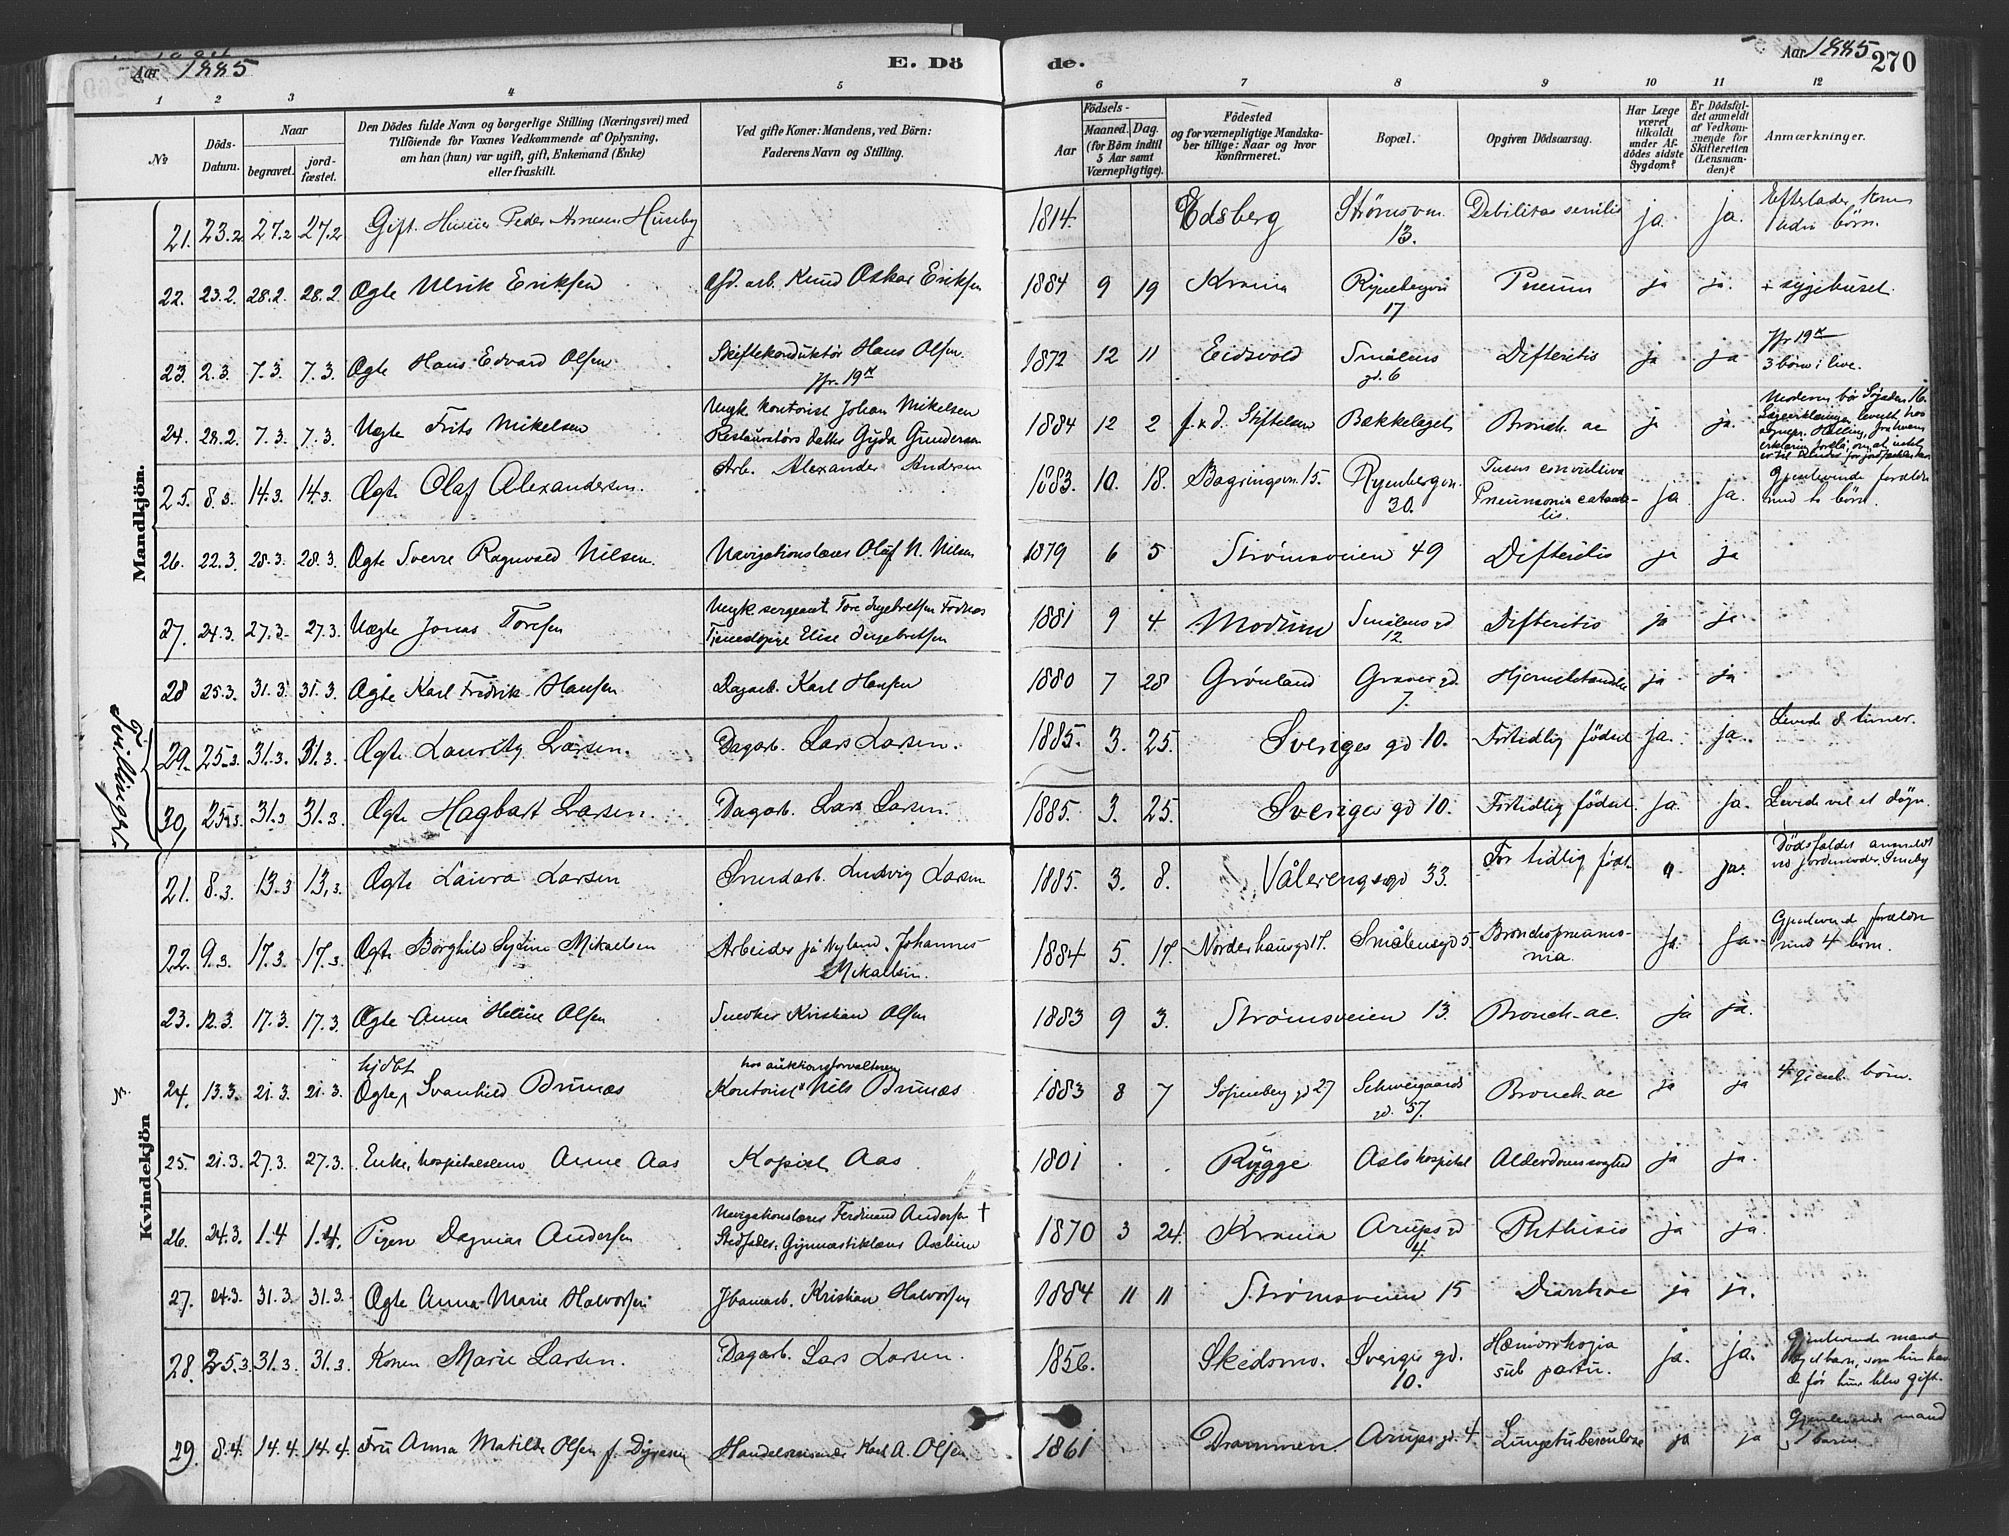 Aar 1885
E. Dö
de.
Aar 1885
270
1 2 3 4 5 6 7 8 9 10 11 12
No
Döds-Datum.
Naar
begravet.
jord-fæstet.
Den Dödes fulde Navn og borgerlige Stilling (Næringsvei) med
Tilföiende for Voxnes Vedkommende af Oplysning,
om han (hun) var ugift, gift, Enkemand (Enke)
eller fraskilt.
Ved gifte Koner: Mandens, ved Börn:
Faderens Navn og Stilling.
Födsels-
Aar
Maaned. Dag.
(for Börn indtil
5 Aar samt
Værnepligtige).
Födested
og for værnepligtige Mandska-
ber tillige: Naar og hvor
konfirmeret.
Bopæl.
Opgiven Dödsaarsag.
Har Læge
været
tilkaldt
under Af-
dödes sidste
Sygdom?
Er Dödsfal-
det anmeldt
af Vedkom-
mende for
Skifteretten
(Lensman-
den)?
Anmærkninger.
Mandkjön.
21. 23.2 27.2 27.2 Gift. Peder Arnesen Huseby 1814. Edsberg Strømsvn. 13. Debilitas senilis ja. ja. Efterlader kone
børn.
22. 23.2. 28.2. 28.2. Ægte Ulrik Eriksen arb. Knud Oskar Eriksen 1884 9 19 Krania 17 Pneum ja ja. sygehuset.
23. 2.3. 7.3. 7.3. Ægte Hans Edvard Olsen Skiftekonduktør Hans Olsen. 1872 12 11 Eidsvold Smålens gd. 6 Difteritis ja ja 3 børn i live.
24. 28.2. 7.3. 7.3. Uægte Frits Mikelsen Ungk. kontorist Johan Mikelsen
Restauratørs datter Gyda Gundersen 1884 12 2 Stiftelsen Bækkelaget Bronch. ac ja ja.
25. 8.3. 14.3. 14.3. Ægte Olaf Alexandersen. Arb. Alexander Andersen 1883. 10. 18. 15. Rynbergvn. 30. Tusis convulsiva
Pneumonia catarrhalis ja ja. Gjenlevende forældre
med børn.
26. 22.3. 28.3. 28.3. Ægte Sverre Ragnvald Nilsen. Navigationslærer Oluf N. Nilsen 1879 6 5 Strømsveien 49 Difteritis ja ja
27. 24.3. 27.3. 27.3. Uægte Jonas Toresen Ungk sergeant Tore Ingebretsen
Tjenestepige Elise Ingebretsen 1881 9 4 Modum Smålens gd 12 Difteritis ja ja
28 25.3. 31.3. 31.3. Ægte Karl Fredrik Hansen Dagarb. Karl Hansen 1880 7 28 Grønland Graver gd. 7. ja ja
Tvillinger.
29. 25.3. 31.3. 31.3. Ægte Lauritz Larsen. Dagarb. Lars Larsen. 1885. 3. 25. Sveriges gd 10. Fortidlig fødsel ja. ja. Levede 8 timer.
30. 25.3. 31.3 31.3. Ægte Hagbart Larsen. Dagarb. Lars Larsen. 1885. 3. 25. Sveriges gd 10. Fortidlig fødsel ja. ja. Levede vel et døgn.
Kvindekjön
21. 8.3. 13.3 13.3. Ægte Laura Larsen Smedarb. Ludvig Larsen 1885. 3. 8. Vålerengs gd 33. For tidlig født. ja. Dødsfaldet anmeldt
ved jordemoder
22. 9.3. 17.3. 17.3. Ægte Borghild Mikaelsen Arbeider på Nyland. Johannes
Mikaelsen. 1884 5. 17. Norderhausgd 17. Smålensgd 5 Bronchopneumo-
nia. ja. ja. Gjenlevend forældre
med 4 børn.
23. 12.3. 17.3. 17.3. Ægte Anna Helene Olsen Snedker Kristian Olsen 1883 9 3. Strømsveien 13. Bronch. ac. ja ja.
24. 13.3. 21.3. 21.3. Ægte hjdbt Svanhild Brunæs Kontorist hos auktionsforvalteren Nils Brunæs 1883 8 7 gd 27 Schweigaards gd. 57. Bronch. ac ja ja 4 børn.
25. 21.3. 27.3. 27.3. Enke, hospitalslem Anne Aas Kopist Aas 1801 Rygge Oslo hospital Alderdomssvaghed ja ja.
26. 24.3. 1.4 1.4. Pigen Dagmar Andersen Navigationslærer Ferdinand Andersen †
Stedfader: Gymnastiklærer 1870 3 24. Krania Arups gd 4. Phthisis ja ja.
27. 24.3. 31.3. 31.3. Ægte Anna Marie Halvorsen Jbanearb. Kristian Halvorsen 1884 11 11 Strømsveien 15 Diarrhoe ja ja.
28. 25.3. 31.3. 31.3. Konen Marie Larsen. Dagarb. Lars Larsen. 1856. Skedsmo. Sveriges gd. 10. Hæmorrhagia
sub partu. ja. ja. Gjenlevende mand
og et barn, som hun havde
før hun blev gift.
29. 8.4. 14.4. 14.4. Fru Anna Matilde Olsen f. Handelsreisende Karl A. Olsen 1861 Drammen Arups gd. 4. Lungetuberculose ja ja Gjenlevende mand
1 barn